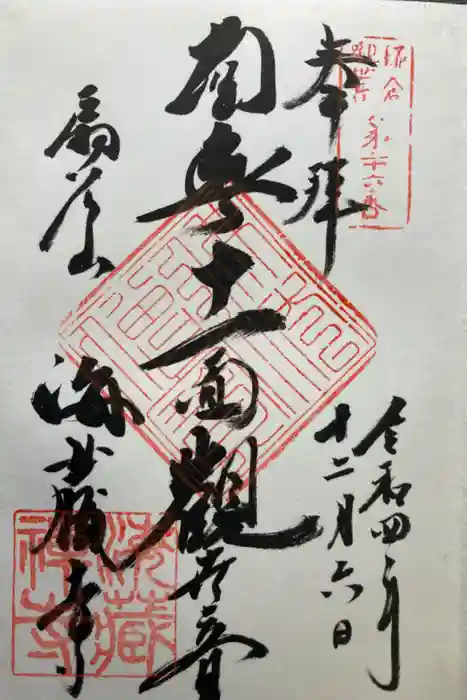 鎌倉
観世音
第二十六番
奉拝
令和四年
十二月六日
南無十一面観世音
扇谷山
海蔵寺
海蔵
禅寺